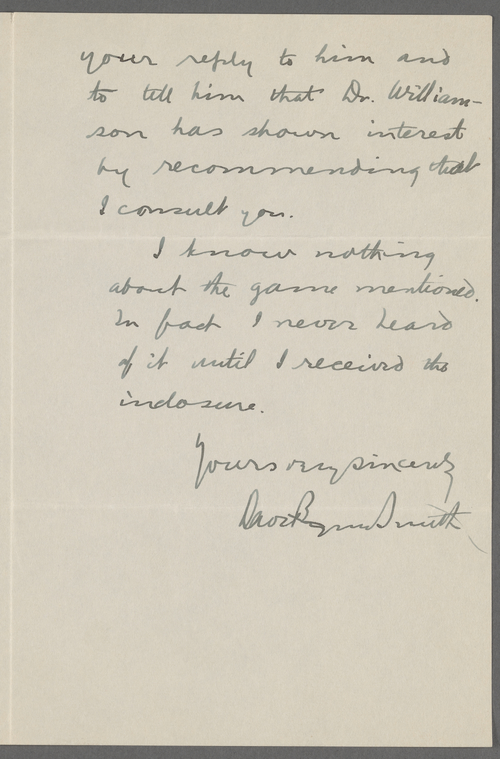 your reply to him and
to tell him that Dr. William-
son has shown interest
by recommending that
I consult you.
I know nothing
about the game mentioned.
In fact I never heard
of it until I received the
inclosure.
Yours very sincerely
Smith